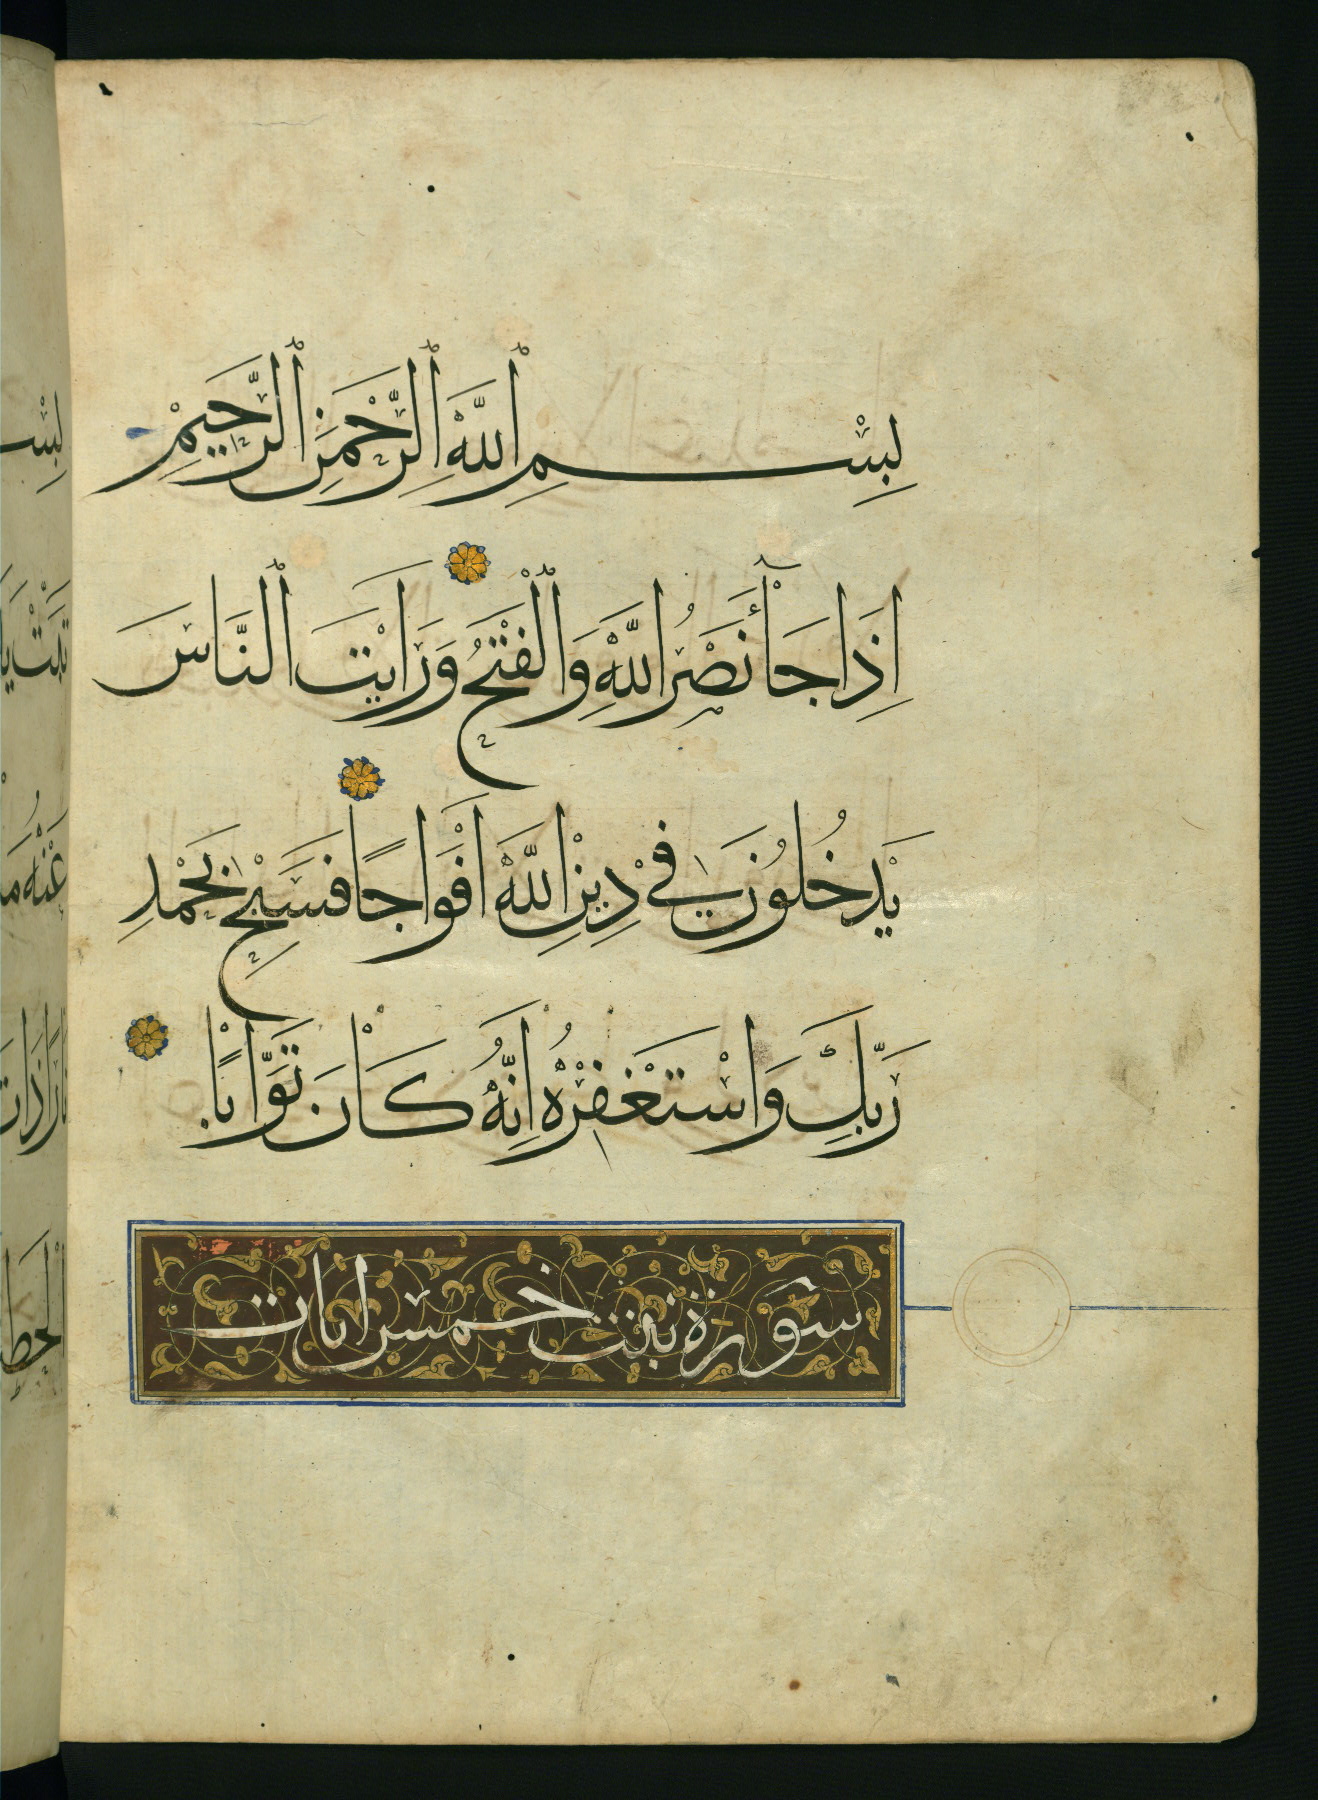 بِسْمِ اللَّهِ الرَّحْمَنِ الرَّحِيمِ
اِذَا جَاءَ نَصْرُ اللَّهِ وَالْفَتْحُ وَرَاَيْتَ النَّاسَ
يَدْخُلُونَ فِي دِينِ اللَّهِ اَفْوَاجًا فَسَبِّحْ بِحَمْدِ
رَبِّكَ وَاسْتَغْفِرْهُ اِنَّهُ كَانَ تَوَّابًا
سورة تبت خمس ايات